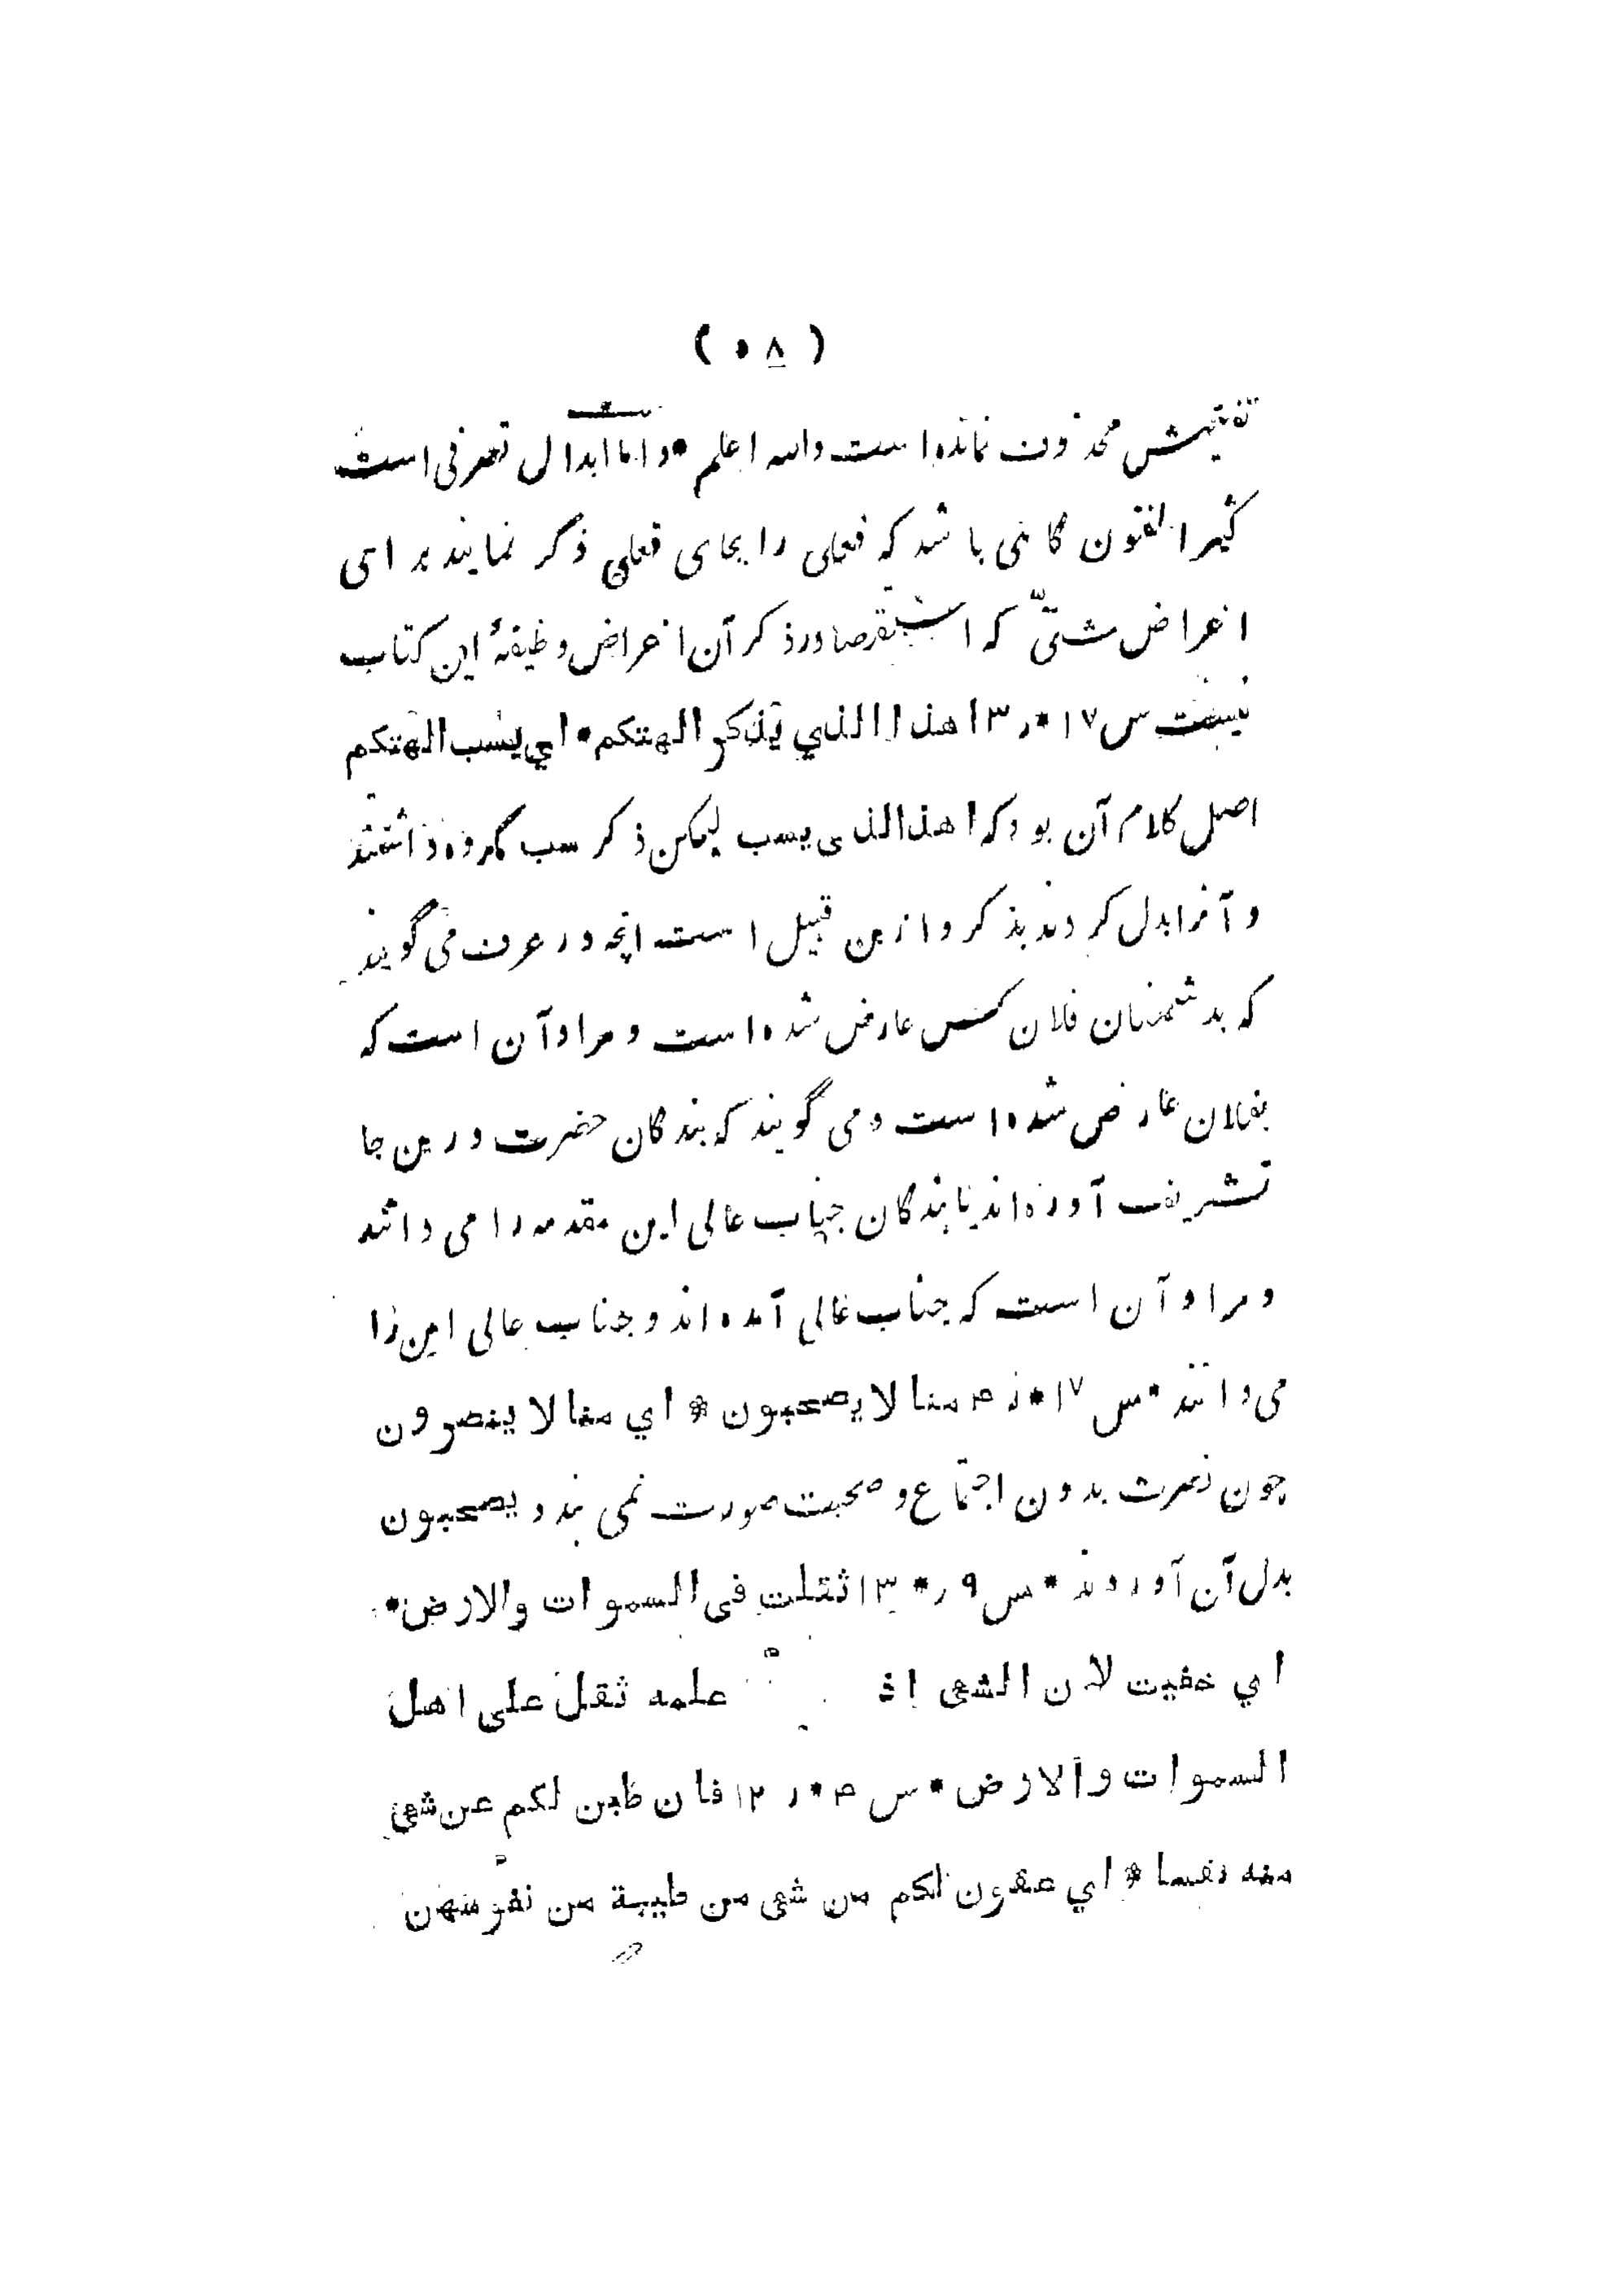 ( ۵۸ )
تفتیش محذوف نمانده است والله اعلم * و اما ابدال تصرفی است
کثیر الفنون گاهی باشد که فعلی را بجای فعلی ذکر نمایند برای
اغراض شتیّ که استقصا در ذکر آن اغراض وظیفهٔ این کتاب
نیست س ۱۷ * ر ۳ اهذا الذي يذكر الهتكم * اي يسب الهتكم
اصل کلام آن بود که اهذا الذی یسب لیکن ذکر سب مکروه داشتند
و آنرا بدل کردند بذکر و ازین قبیل است انچه در عرف می گویند
که بدشمنان فلان کس عارض شده است و مراد آن است که
بفلان عارض شده است و می گویند که بندگان حضرت درین جا
تشریف آورده اند یا بندگان جناب عالی این مقدمه را می دانند
و مراد آن است که جناب عالی آمده اند و جناب عالی این را
می دانند * س ۱۷ * ر ۴ منا لا يصحبون * اي منا لا ينصرون
چون نصرت بدون اجتماع و صحبت صورت نمی بندد يصحبون
بدل آن آوردند * س ۹ ر * ۱۳ ثقلت في السموات والارض *
اي خفيت لان الشي اذ علمه ثقل على اهل
السموات والارض * س ۴ * ر ۱۲ فان طبن لكم عن شي
منه نفسا * اي عفون لكم من شي من طيبة من نفوسهن